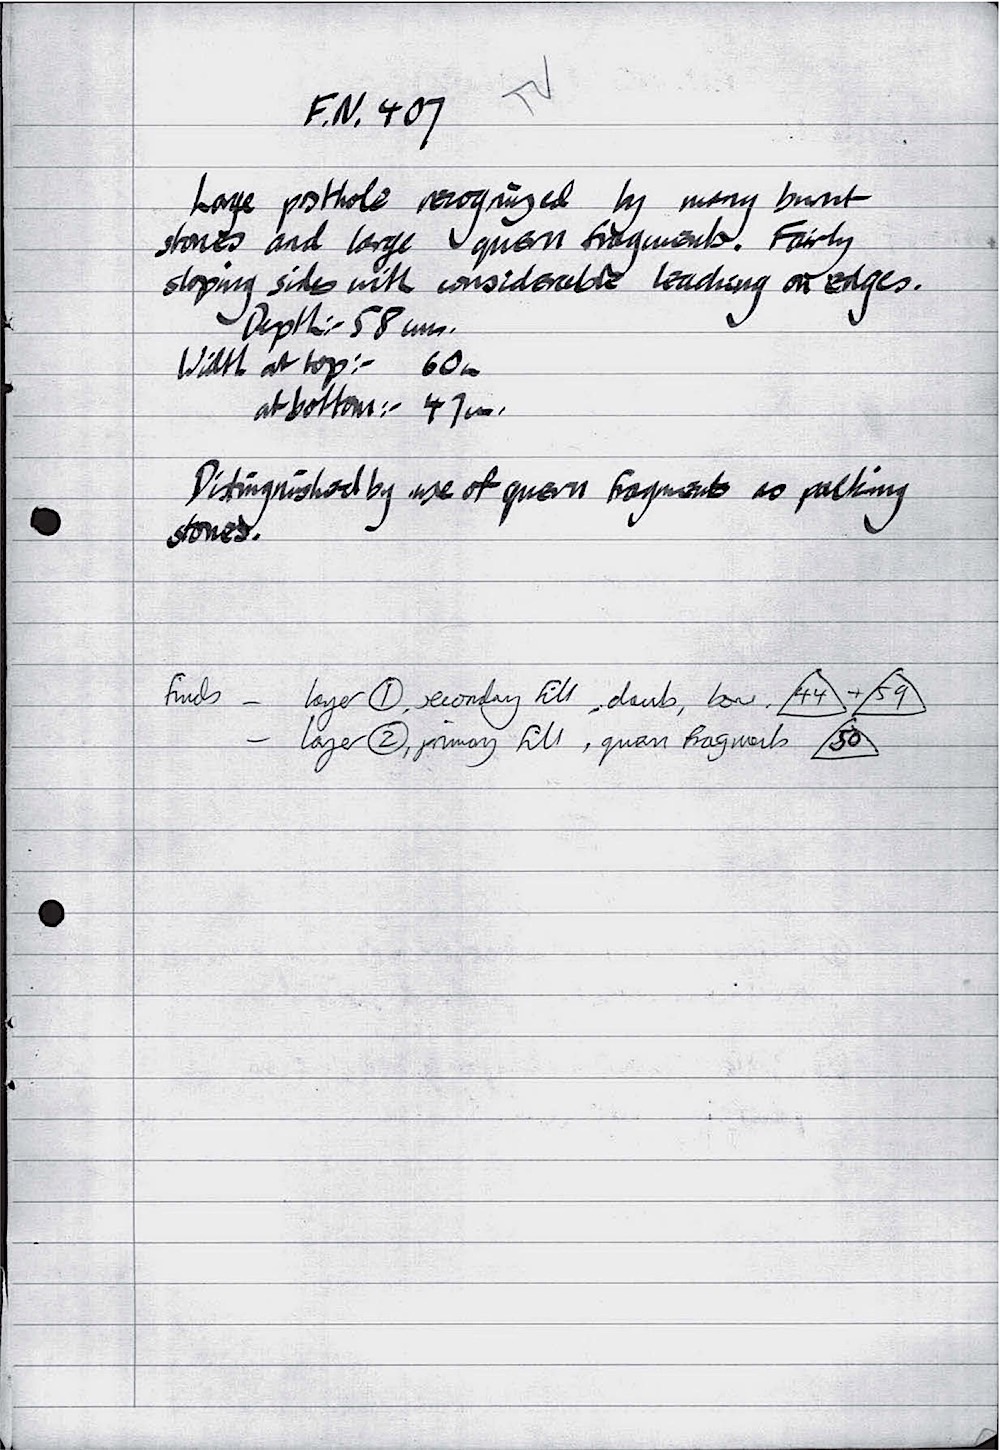 F.N. 407
Large posthole recognized by many burnt
stones and large quern fragments. Fairly
sloping sides with considerable leaching on edges.
Depth:- 58 cms.
Width at top:- 60cm
at bottom:- 47cm.
Distinguished by use of quern fragments as packing
stones.
Finds - layer ①, secondary fill, daub, bone. 44 + 59
- layer ②, primary fill, quern fragments 50